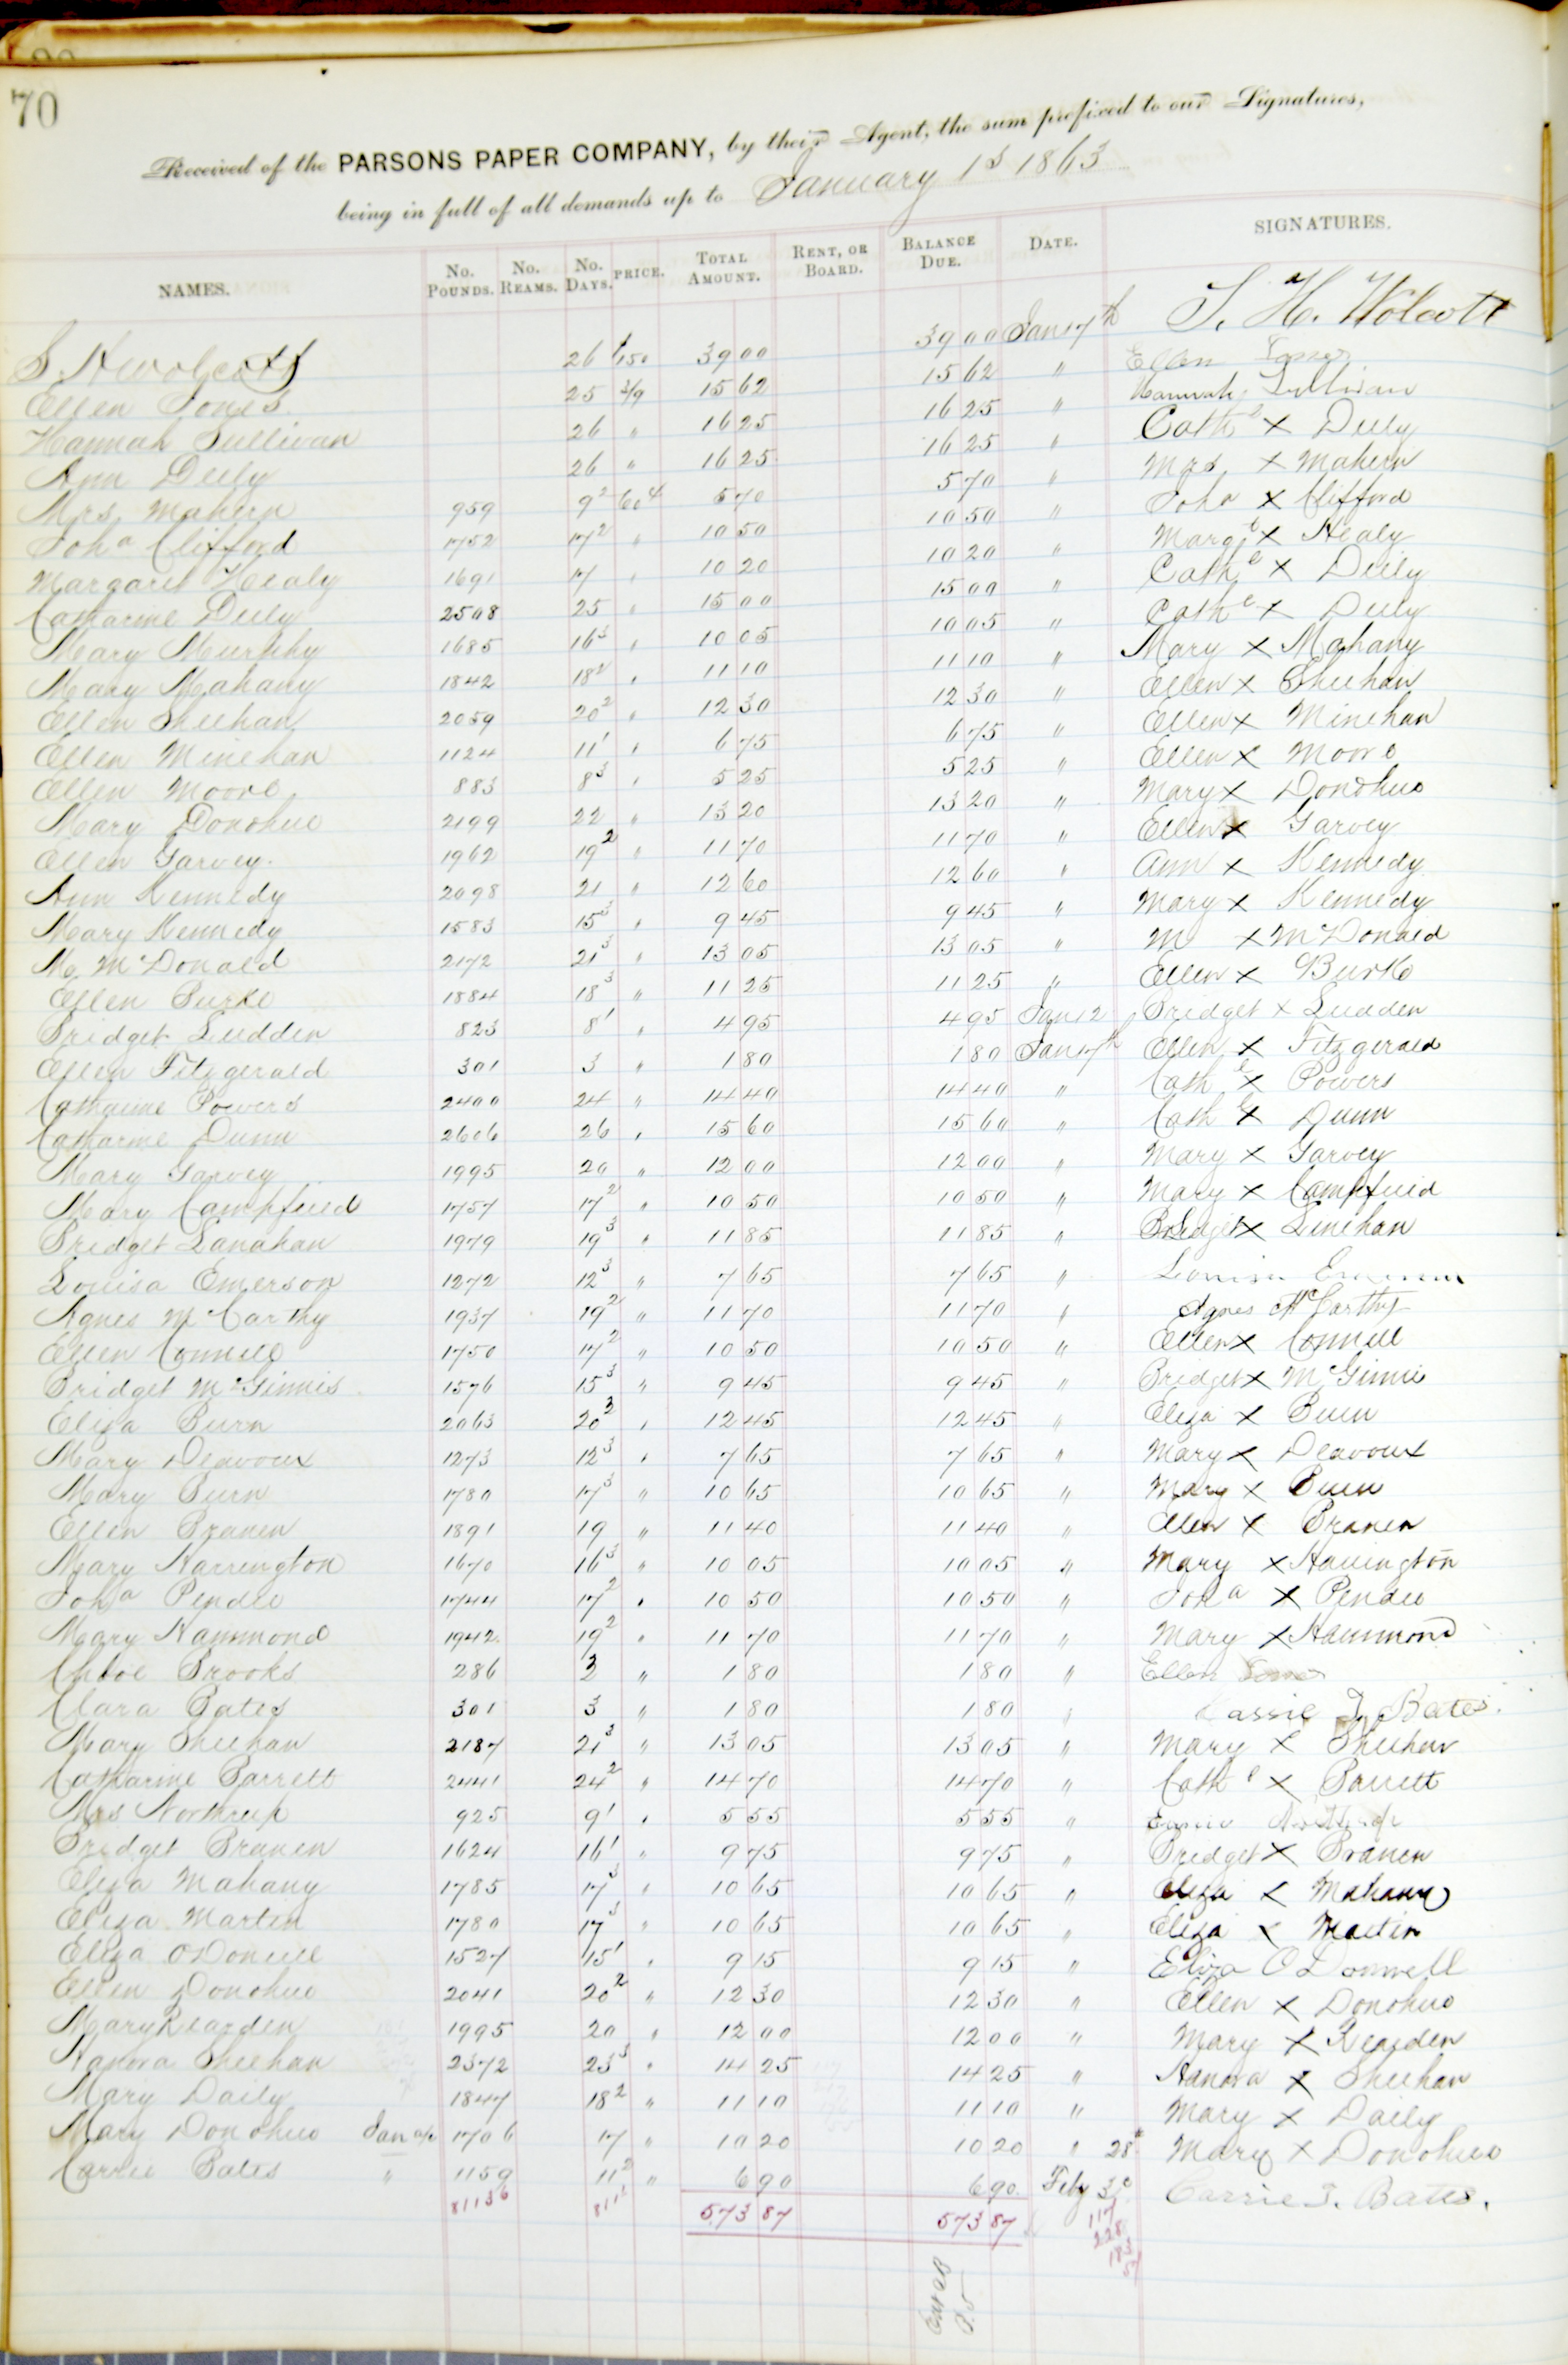 70
Received of the PARSONS PAPER COMPANY, by their Agent, the sum prefixed to our Signatures,
being in full of all demands up to January 1st 1863
NAMES. No. POUNDS. No. REAMS. No. DAYS. PRICE. TOTAL AMOUNT. RENT, OR BOARD. BALANCE DUE. DATE. SIGNATURES.
S. H. Wolcott 26 1 50 39 00 39 00 Jan 17th S. H. Wolcott
Ellen Jones 25 3/9 15 62 15 62 " Ellen Jones
Hannah Sullivan 26 " 16 25 16 25 " Hannah Sullivan
Ann Deely 26 " 16 25 16 25 " Cathe x Deely
Mrs Mahern 959 9 2 60 5 70 5 70 " Mrs x Mahern
Joha Clifford 1752 17 2 " 10 50 10 50 " Joha x Clifford
Margaret Healy 1691 17 " 10 20 10 20 " Margt x Healy
Catharine Deely 2508 25 " 15 00 15 00 " Cathe x Deely
Mary Murphy 1685 16 3 " 10 05 10 05 " Cathe x Deely
Mary Mahany 1842 18 2 " 11 10 11 10 " Mary x Mahany
Ellen Sheehan 2059 20 2 " 12 30 12 30 " Ellen x Sheehan
Ellen Minehan 1124 11 1 " 6 75 6 75 " Ellen x Minehan
Ellen Moore 883 8 3 " 5 25 5 25 " Ellen x Moore
Mary Donohue 2199 22 " 13 20 13 20 " Mary x Donohue
Ellen Garvey 1962 19 2 " 11 70 11 70 " Ellen x Garvey
Ann Kennedy 2098 21 " 12 60 12 60 " Ann x Kennedy
Mary Kennedy 1583 15 3 " 9 45 9 45 " Mary x Kennedy
M. McDonald 2172 21 3 " 13 05 13 05 " M x McDonald
Ellen Burke 1884 18 3 " 11 25 11 25 " Ellen x Burke
Bridget Ludden 823 8 1 " 4 95 4 95 Jan 12 Bridget x Ludden
Ellen Fitzgerald 301 3 " 1 80 1 80 Jan 17th Ellen x Fitzgerald
Catharine Powers 2400 24 " 14 40 14 40 " Cathe x Powers
Catharine Dunn 2606 26 " 15 60 15 60 " Cathe x Dunn
Mary Garvey 1995 20 " 12 00 12 00 " Mary x Garvey
Mary Campfield 1757 17 2 " 10 50 10 50 " Mary x Campfield
Bridget Lanahan 1979 19 3 " 11 85 11 85 " Bridget x Linehan
Louisa Emerson 1272 12 3 " 7 65 7 65 " Louisa Emerson
Agnes McCarthy 1937 19 2 " 11 70 11 70 " Agnes McCarthy
Ellen Connell 1750 17 2 " 10 50 10 50 " Ellen x Connell
Bridget McGinnis 1576 15 3 " 9 45 9 45 " Bridget x McGinnis
Eliza Burn 2063 20 3 " 12 45 12 45 " Eliza x Burn
Mary Deavoux 1273 12 3 " 7 65 7 65 " Mary x Deavoux
Mary Burn 1780 17 3 " 10 65 10 65 " Mary x Burn
Ellen Branen 1891 19 " 11 40 11 40 " Ellen x Branen
Mary Harrington 1670 16 3 " 10 05 10 05 " Mary x Harrington
Joha Pendee 1744 17 2 " 10 50 10 50 " Joha x Pendee
Mary Hammond 1942 19 2 " 11 70 11 70 " Mary x Hammond
Chloe Brooks 286 3 " 1 80 1 80 " Ellen Jones
Clara Bates 301 3 " 1 80 1 80 " Cassie J. Bates.
Mary Sheehan 2187 21 3 " 13 05 13 05 " Mary x Sheehan
Catharine Barrett 2441 24 2 " 14 70 14 70 " Cathe x Barrett
Mrs Northrup 925 9 1 " 5 55 5 55 " Northrup
Bridget Branen 1624 16 1 " 9 75 9 75 " Bridget x Branen
Eliza Mahany 1785 17 3 " 10 65 10 65 " Eliza x Mahany
Eliza Martin 1780 17 3 " 10 65 10 65 " Eliza x Martin
Eliza ODonnell 1527 15 1 " 9 15 9 15 " Eliza ODonnell
Ellen Donohue 2041 20 2 " 12 30 12 30 " Ellen x Donohue
Mary Rearden 1995 20 " 12 00 12 00 " Mary x Rearden
Hanora Sheehan 2372 23 3 " 14 25 14 25 " Hanora x Sheehan
Mary Daily 1847 18 2 " 11 10 11 10 " Mary x Daily
Mary Donohue Jan a/c 1706 17 " 10 20 10 20 " 28th Mary x Donohue
Carrie Bates " 1159 11 2 " 6 90 6 90 Feby 3d Carrie J. Bates.
81136 811 573 87 573 87 117
228
183